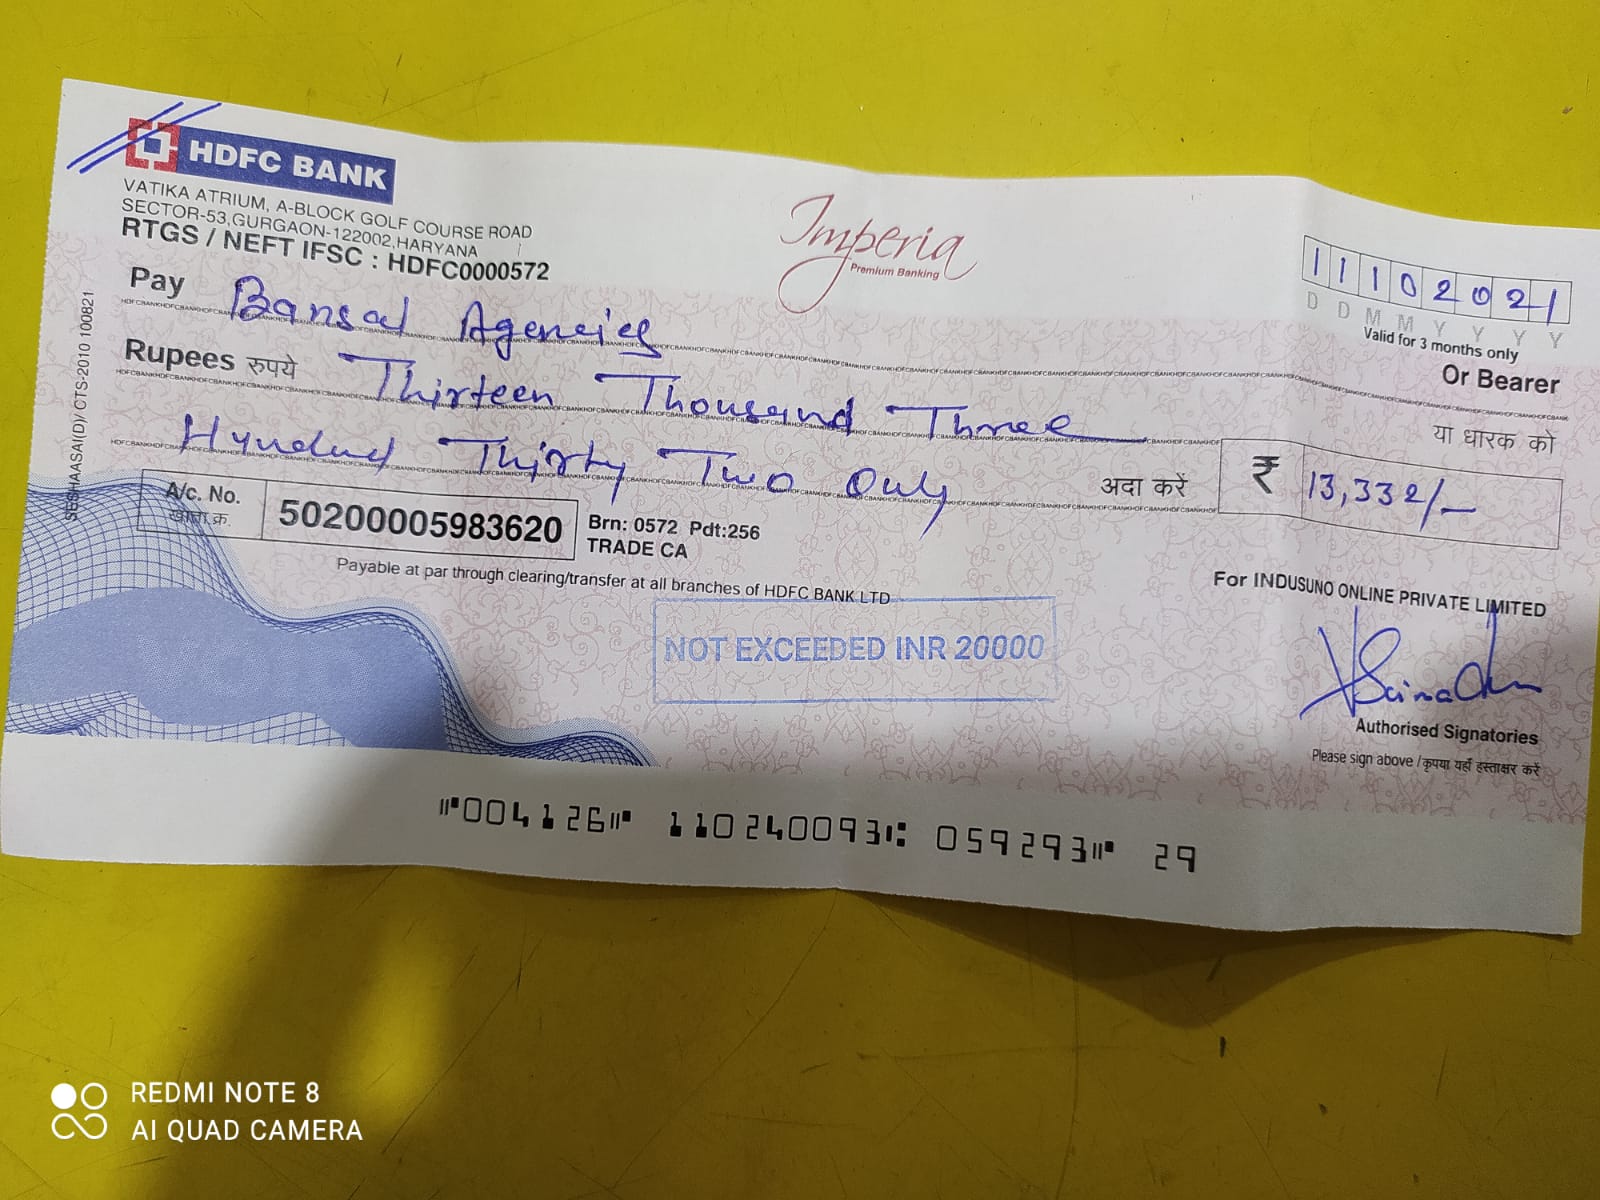 HDFC BANK
VATIKA ATRIUM, A-BLOCK GOLF COURSE ROAD
SECTOR-53,GURGAON-122002,HARYANA
RTGS / NEFT IFSC : HDFC0000572
Imperia
Premium Banking
11102021
D D M M Y Y Y Y
Valid for 3 months only
Pay Bansal Agencies
Or Bearer
या धारक को
Rupees रुपये Thirteen Thousand Three
Hundred Thirty Two Only
अदा करें
₹ 13,332/-
A/c. No.
खाता क्र.
50200005983620
Brn: 0572 Pdt:256
TRADE CA
Payable at par through clearing/transfer at all branches of HDFC BANK LTD
NOT EXCEEDED INR 20000
For INDUSUNO ONLINE PRIVATE LIMITED
Authorised Signatories
Please sign above / कृपया यहाँ हस्ताक्षर करें
SESHAASAI(D)/ CTS-2010 100821
⑈004126⑈ 110240093⑆ 059293⑈ 29
REDMI NOTE 8
AI QUAD CAMERA